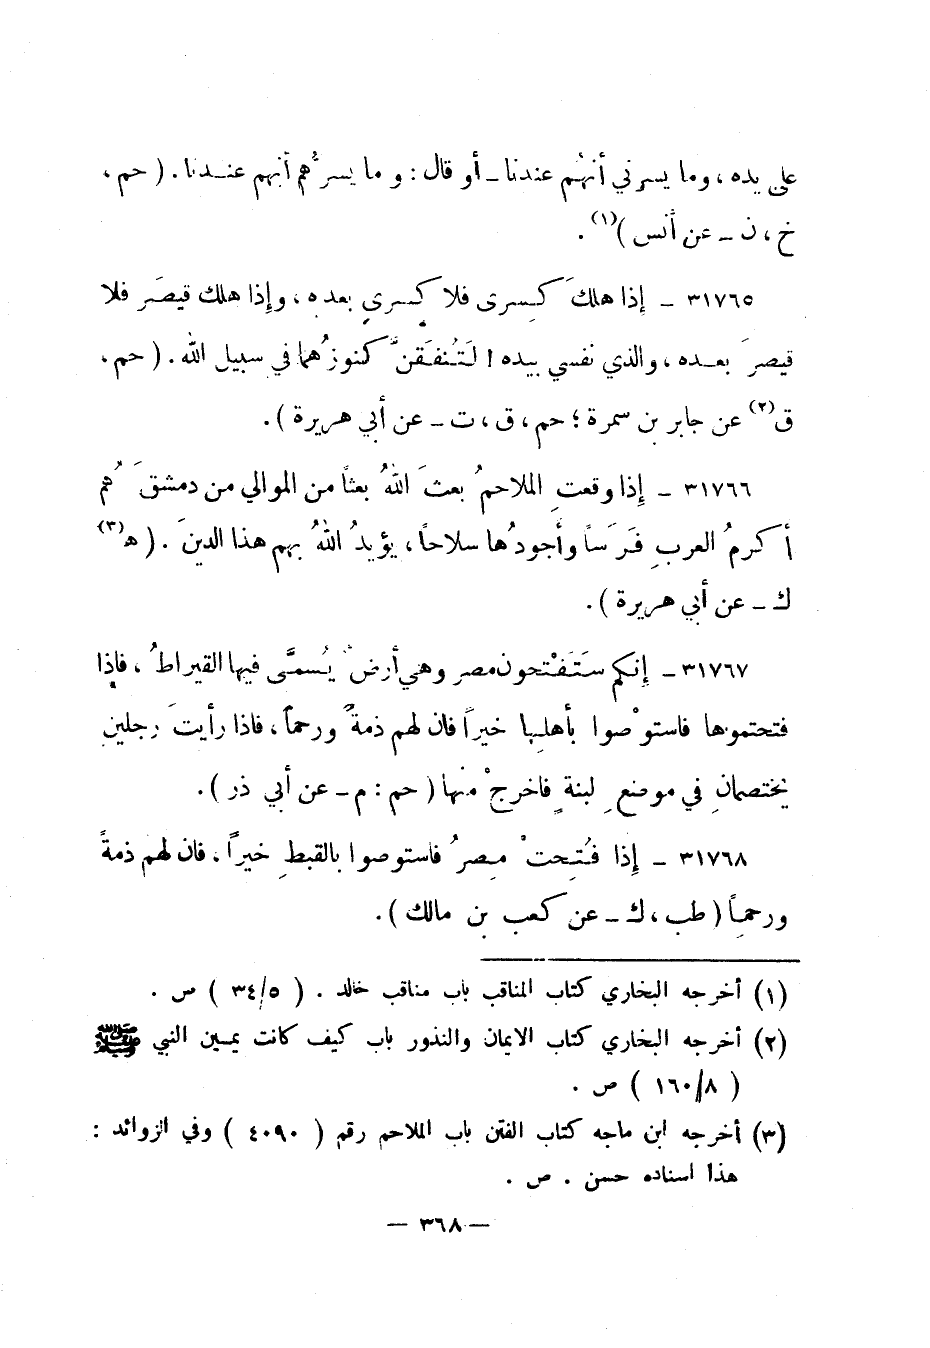 على يده ، وما يسرني أنهُم عندنا ـ أو قال : و ما يسرُّهم أنهم عندنا . ( حم ،
خ ، ن ـ عن أنس )(١) .
٣١٧٦٥ ـ إذا هلكَ كِسرى فلا كِسرى بعده ، وإذا هلك قيصَر فلا
قيصرَ بعده ، والذي نفسي بيده ! لَتُنفَقنَّ كنوزُهما في سبيل الله . ( حم ،
ق(٢) عن جابر بن سمرة ؛ حم ، ق ، ت ـ عن أبي هريرة ) .
٣١٧٦٦ ـ إذا وقعتِ الملاحمُ بعثَ اللهُ بعثاً من الموالي من دمشقَ هُم
أكرمُ العربِ فَرَساً وأجودُها سلاحاً ، يؤيدُ اللهُ بهم هذا الدينَ . ( ه(٣)
ك ـ عن أبي هريرة ) .
٣١٧٦٧ ـ إنكم ستَفْتحون مصر وهي أرضٌ يُسمَّى فيها القيراطُ ، فإذا
فتحتموها فاستوْصوا بأهلها خيراً فان لهم ذمةً ورحماً ، فاذا رأيتَ رجلينِ
يختصمانِ في موضعِ لبنةٍ فاخرجْ منها ( حم : م ـ عن أبي ذر ) .
٣١٧٦٨ ـ إذا فُتِحتْ مِصرُ فاستوصوا بالقبطِ خيراً ، فان لهم ذمةً
ورحماً ( طب ، ك ـ عن كعب بن مالك ) .
(١) أخرجه البخاري كتاب المناقب باب مناقب خالد . ( ٣٤/٥ ) ص .
(٢) أخرجه البخاري كتاب الايمان والنذور باب كيف كانت يمين النبي ﷺ
( ١٦٠/٨ ) ص .
(٣) أخرجه ابن ماجه كتاب الفتن باب الملاحم رقم ( ٤٠٩٠ ) وفي الزوائد :
هذا اسناده حسن . ص .
— ٣٦٨ —